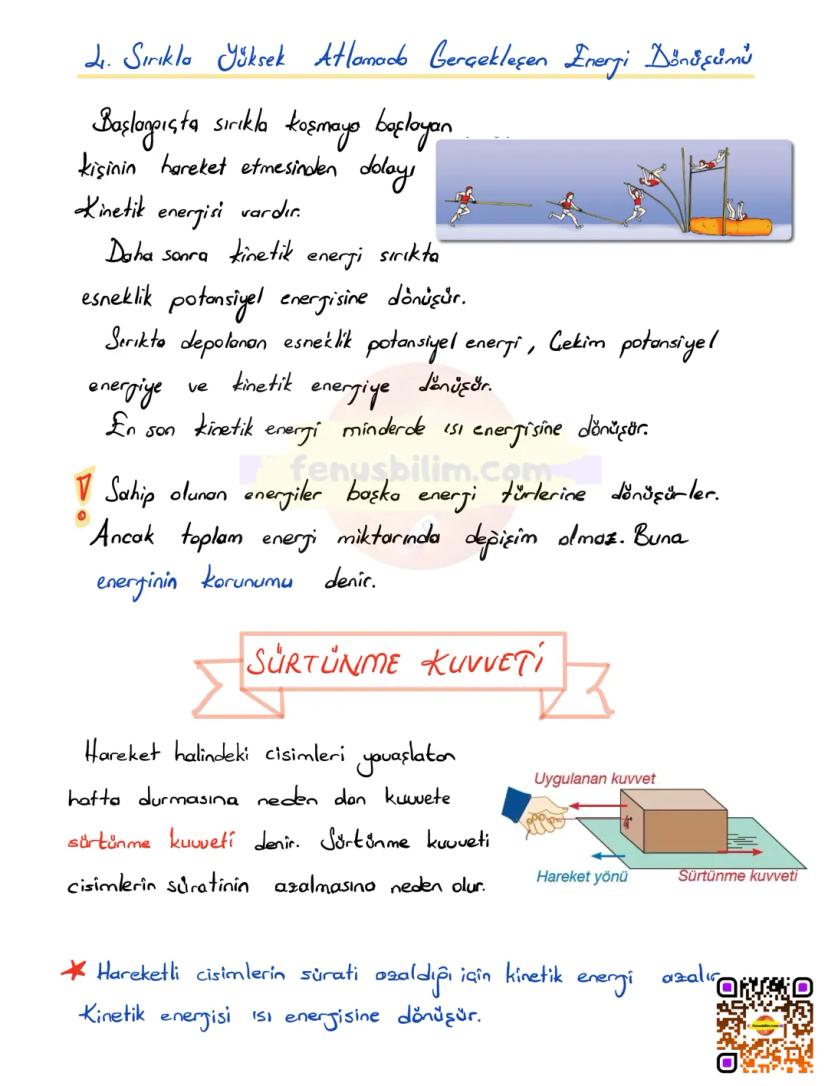 4. Sırıkla Yüksek Atlamada Gerçekleşen Enerji Dönüşümü
Başlangıçta sırıkla koşmaya başlayan
kişinin hareket etmesinden dolayı
Kinetik energisi vardır.
Daha sonra kinetik enerji sırıkta
esneklik potansiyel enerjisine dönüşür.
Sırıkta depolanan esneklik potansiyel enerji, Çekim potansiyel
energiye ve kinetik energiye dönüşür.
En son kinetik enerji minderde ısı energisine dönüşür.
fenusbilim.com
! Sahip olunan energiler başka enerji türlerine dönüşürler.
Ancak toplam enerji miktarında değişim olmaz. Buna
enerjinin korunumu denir.
SÜRTÜNME KUVVETİ
Hareket halindeki cisimleri yavaşlatan
hatta durmasına neden olan kuvvete
sürtünme kuvveti denir. Sürtünme kuvveti
cisimlerin süratinin azalmasına neden olur.
Uygulanan kuvvet
Hareket yönü
Sürtünme kuvveti
Hareketli cisimlerin sürati azaldığı için kinetik enerji azalır.
Kinetik energisi ısı energisine dönüşür.
fenusbilim.com